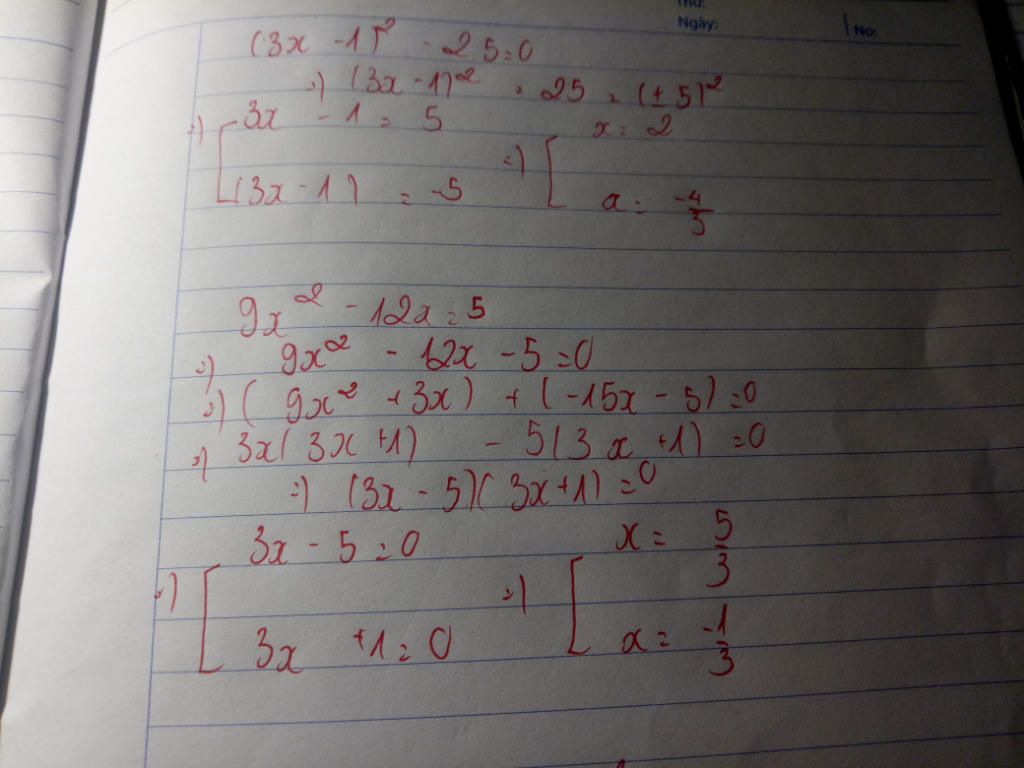 Thứ:
Ngày:
No:
(3x - 1)² - 25 = 0
=> (3x - 1)² = 25 = (± 5)²
=> [ 3x - 1 = 5
(3x - 1) = -5
=> [ x = 2
x = -4/3
9x² - 12x = 5
=> 9x² - 12x - 5 = 0
=> (9x² + 3x) + (-15x - 5) = 0
=> 3x(3x + 1) - 5(3x + 1) = 0
=> (3x - 5)(3x + 1) = 0
=> [ 3x - 5 = 0
3x + 1 = 0
=> [ x = 5/3
x = -1/3